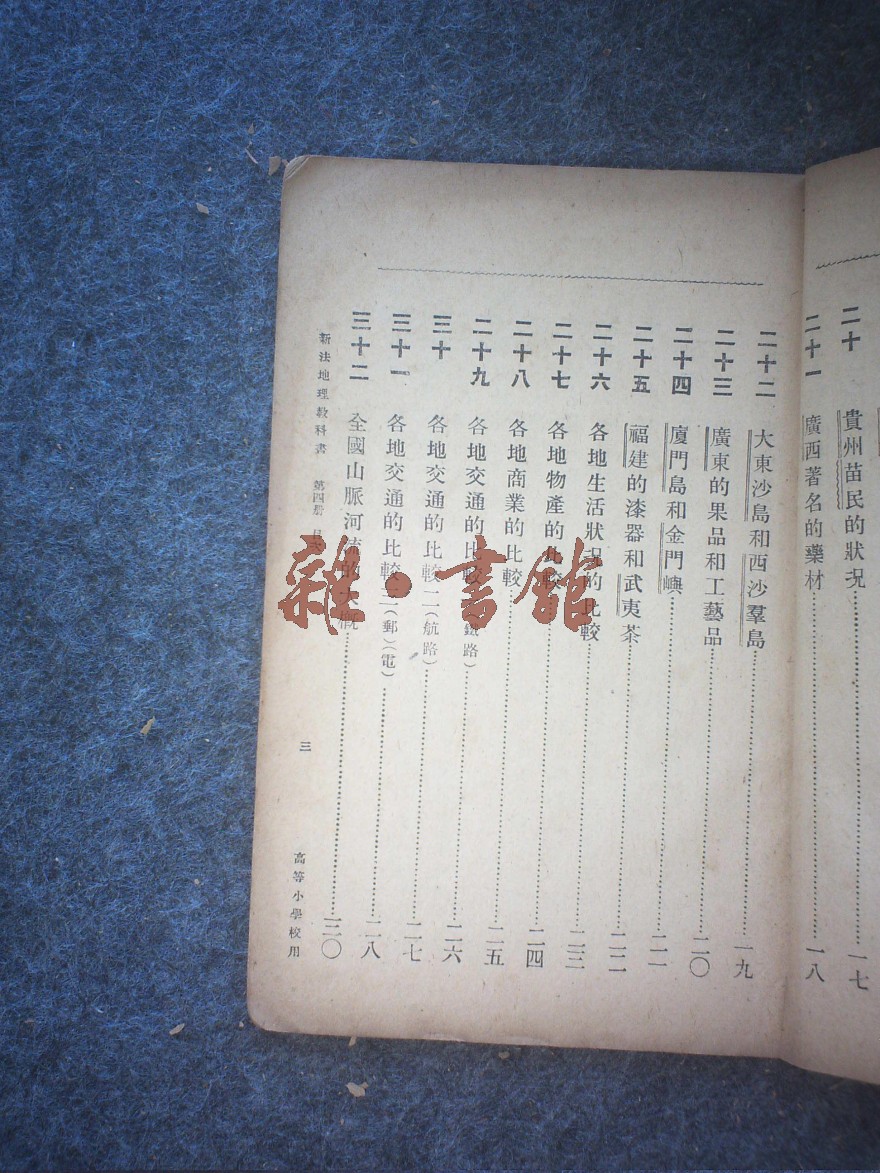 二十 貴州苗民的狀況 一七
二十一 廣西著名的藥材 一八
二十二 大東沙島和西沙羣島 一九
二十三 廣東的果品和工藝品 二〇
二十四 廈門島和金門嶼 二一
二十五 福建的漆器和武夷茶 二二
二十六 各地生活狀況的比較 二三
二十七 各地物產的比較 二四
二十八 各地商業的比較 二五
二十九 各地交通的比較 鐵路) 二六
三十 各地交通的比較二(航路) 二七
三十一 各地交通的比較三(郵)(電) 二八
三十二 全國山脈河流的大概 三〇
新法地理教科書 第四册 目次 三 高等小學校用
雜·書館